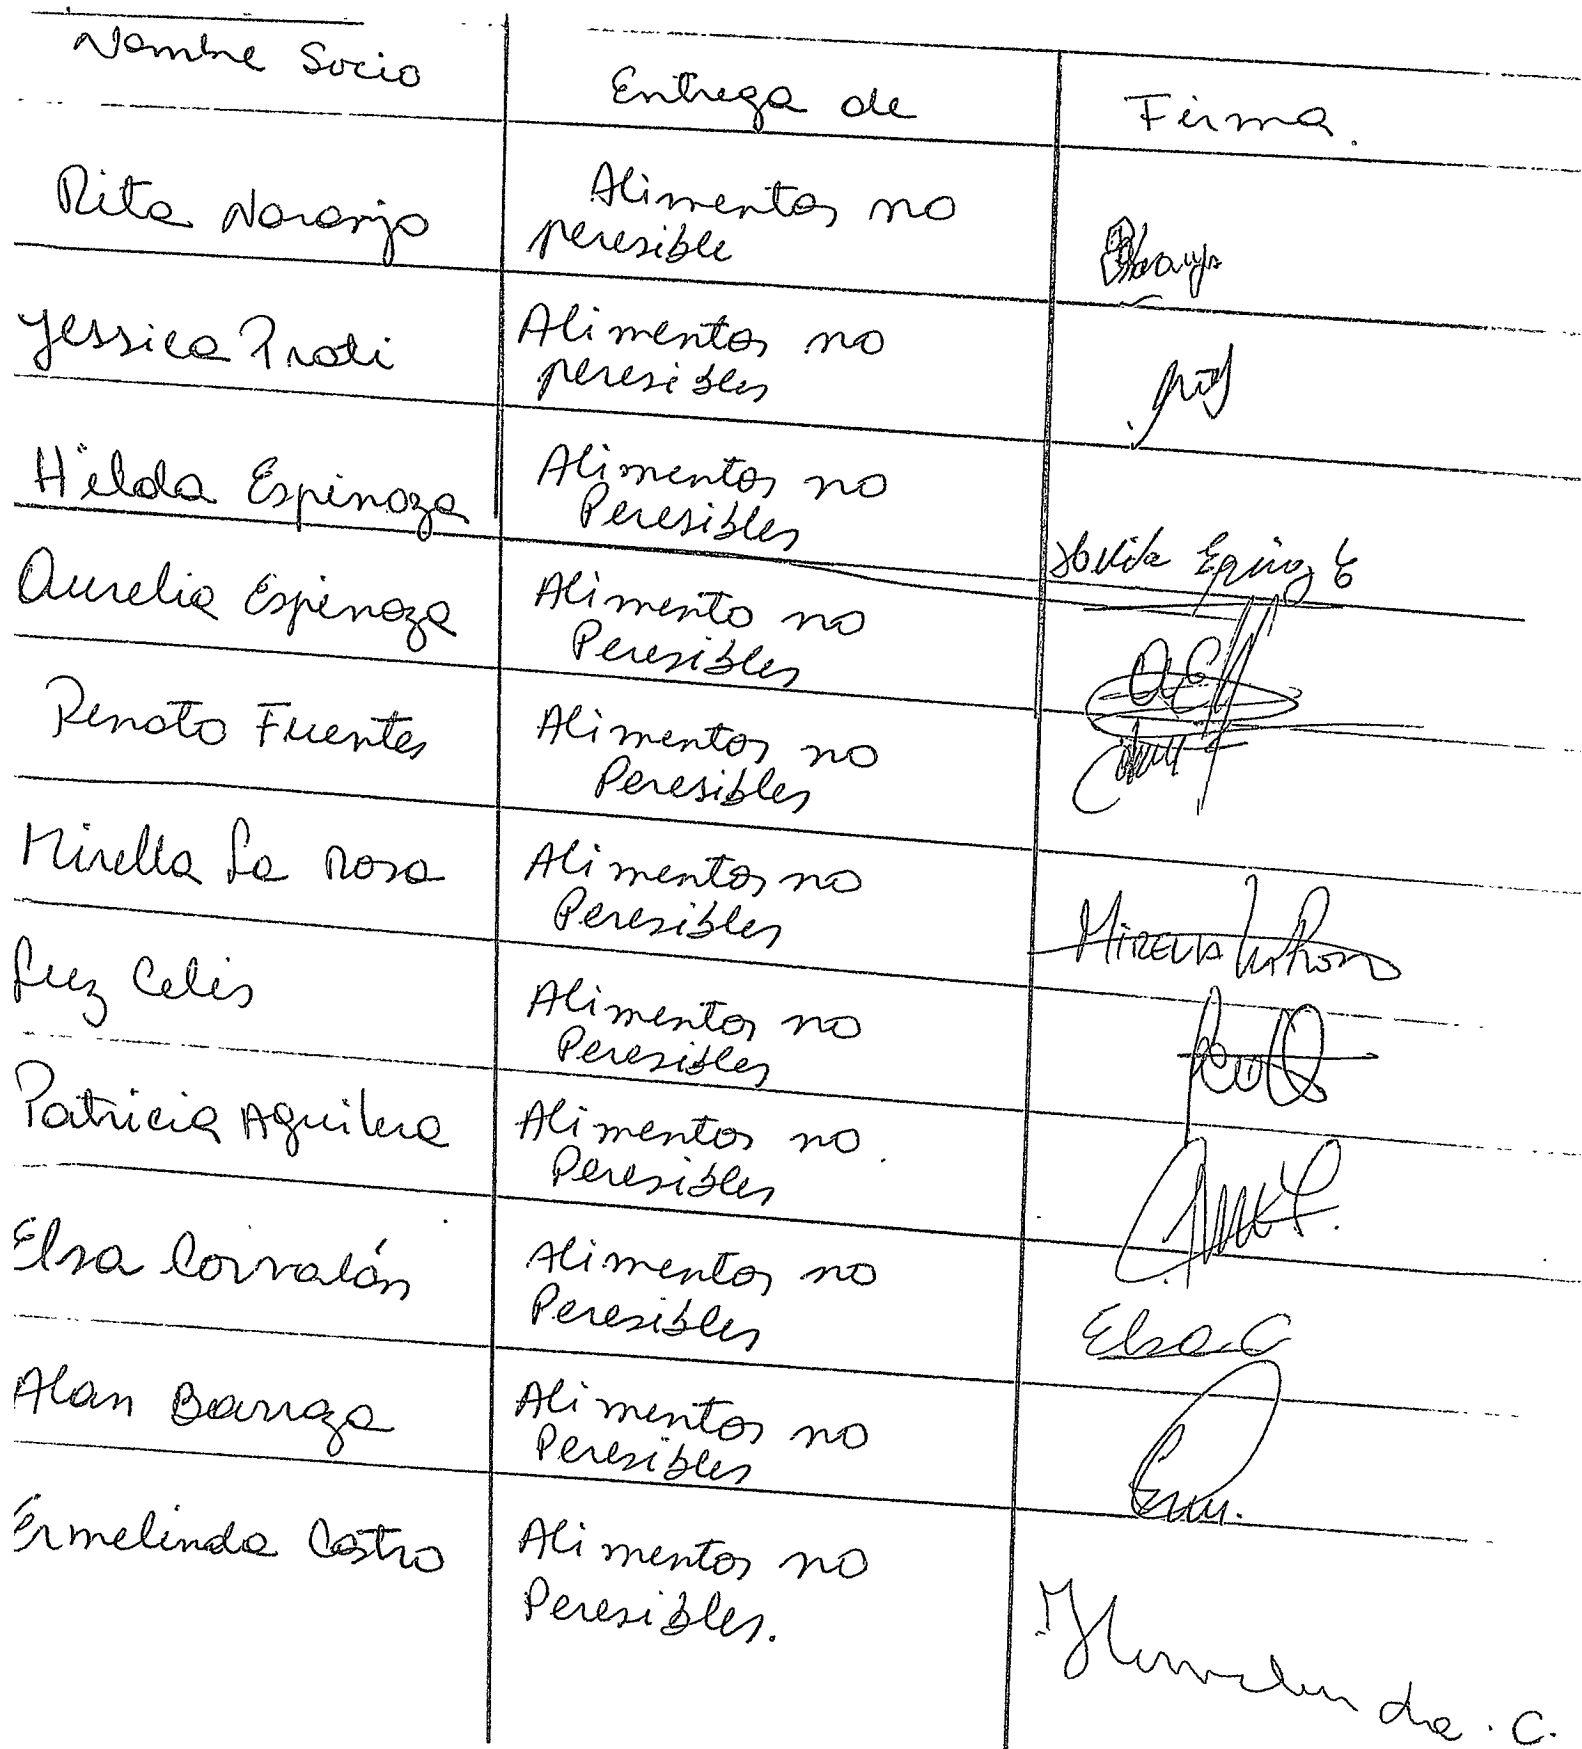 Nombre Socio
Entrega de
Firma.
Rita Naranjo
Alimentos no
peresible
Jessica Prati
Alimentos no
peresibles
Hilda Espinoza
Alimentos no
Peresibles
Aurelia Espinoza
Alimento no
Peresibles
Renato Fuentes
Alimentos no
Peresibles
Mirella La Rosa
Alimentos no
Peresibles
Mirella La Rosa
Luz Celis
Alimentos no
Peresibles
Patricia Aguilera
Alimentos no
Peresibles
Elsa Corralón
Alimentos no
Peresibles
Elsa.C
Alan Barraza
Alimentos no
Peresibles
Ermelinda Castro
Alimentos no
Peresibles.